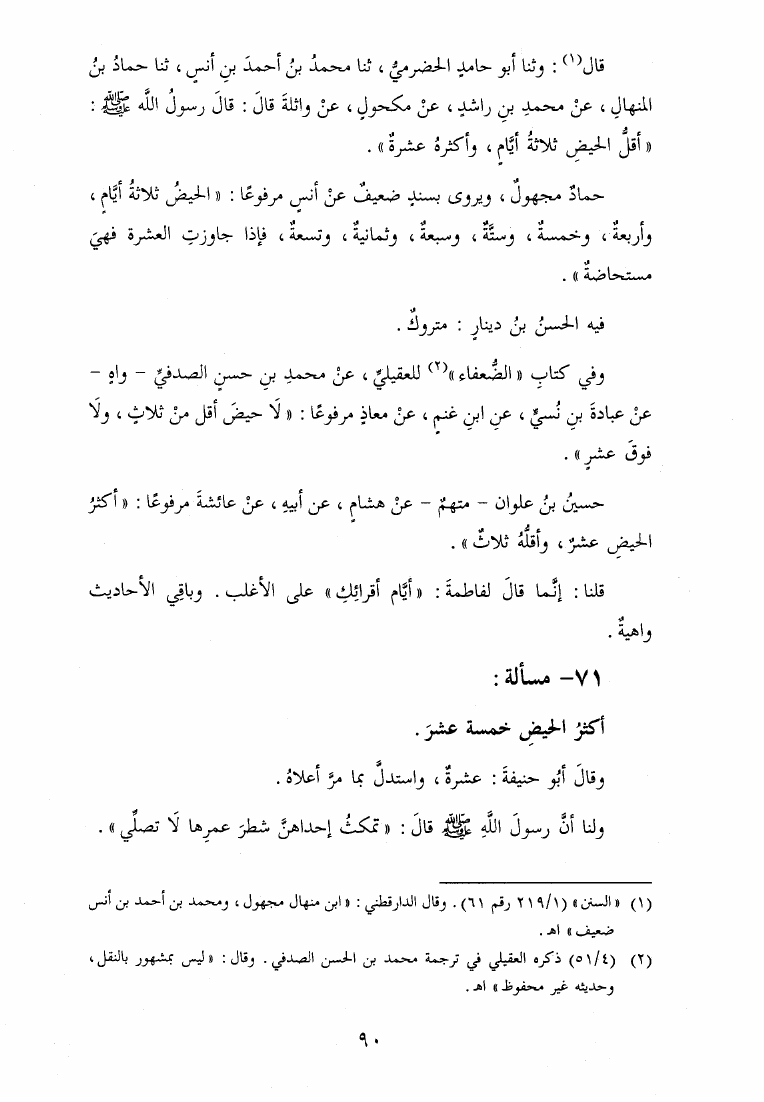 قال(١) : وثنا أبو حامدٍ الحضرميُّ ، ثنا محمدُ بنُ أحمدَ بنِ أنسٍ ، ثنا حمادُ بنُ
المنهالِ ، عنْ محمدِ بنِ راشدٍ ، عنْ مكحولٍ ، عنْ واثلةَ قالَ : قالَ رسولُ اللَّه ﷺ :
« أقلُّ الحيضِ ثلاثةُ أيَّامٍ ، وأكثرهُ عشرةٌ » .
حمادٌ مجهولٌ ، ويروى بسندٍ ضعيفٌ عنْ أنسٍ مرفوعًا : « الحيضُ ثلاثةُ أيَّامٍ ،
وأربعةٌ ، وخمسةٌ ، وستَّةٌ ، وسبعةٌ ، وثمانيةٌ ، وتسعةٌ ، فإذا جاوزتِ العشرة فهيَ
مستحاضةٌ » .
فيه الحسنُ بنُ دينارٍ : متروكٌ .
وفي كتابِ « الضُّعفاء »(٢) للعقيليِّ ، عنْ محمدِ بنِ حسنٍ الصدفيِّ - واهٍ -
عنْ عبادةَ بنِ نُسيٍّ ، عنِ ابنِ غنمٍ ، عنْ معاذٍ مرفوعًا : « لَا حيضَ أقل منْ ثلاثٍ ، ولَا
فوقَ عشرٍ » .
حسينُ بنُ علوان - متهمٌ - عنْ هشامٍ ، عن أبيهِ ، عنْ عائشةَ مرفوعًا : « أكثرُ
الحيضِ عشرٌ ، وأقلُّهُ ثلاثٌ » .
قلنا : إنَّما قالَ لفاطمةَ : « أيَّام أقرائِكِ » على الأغلب . وباقِي الأحاديث
واهيةٌ .
٧١- مسألة :
أكثرُ الحيضِ خمسة عشرَ .
وقالَ أبُو حنيفةَ : عشرةٌ ، واستدلَّ بما مرَّ أعلاهُ .
ولنا أنَّ رسولَ اللَّهِ ﷺ قالَ : « تمكثُ إحداهنَّ شطرَ عمرِها لَا تصلِّي » .
(١) « السنن » (٢١٩/١ رقم ٦١) . وقال الدارقطني : « ابن منهال مجهول ، ومحمد بن أحمد بن أنس
ضعيف » اهـ .
(٢) (٥١/٤) ذكره العقيلي في ترجمة محمد بن الحسن الصدفي . وقال : « ليس بمشهور بالنقل ،
وحديثه غير محفوظ » اهـ .
٩٠